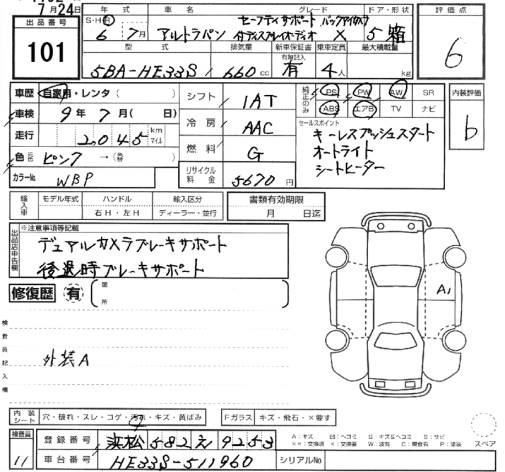 7月24日
出品番号
101
年式 車名 グレード ドア・形状
S・H・R
6年 7月 アルトラパン セーフティサポート バックアイカメラ付ディスプレイオーディオ X 5 箱
型式 排気量 新車保証書 乗車定員 最大積載量
有無記入
5BA-HE33S 660cc 有 4人 kg
評価点
6
車歴 自家用・レンタ( )
車検 9年7月( 日)
走行 2045 km マイル
色 元色 ピンク →(替 )
カラーNo. WBP
シフト 1AT
冷房 AAC
燃料 G
リサイクル料金 5670円
純正のみ
PS PW AW SR
ABS エアB TV ナビ
セールスポイント
キーレスプッシュスタート
オートライト
シートヒーター
内装評価
b
輸入車
モデル年式 ハンドル 輸入区分
年 右H・左H ディーラー・並行
書類有効期限
月 日迄
出品店申告欄
※注意事項等記載
デュアルカメラブレーキサポート
後退時ブレーキサポート
修復歴 有
箇所
検査員記入欄
外装A
A1
内装シート
穴・破れ・スレ・コゲ・汚れ・キズ・黄ばみ
Fガラス キズ・飛石・×要す
スペア
検査員
11
登録番号 浜松 582 え 9253
車台番号 HE33S-511960 シリアルNo.